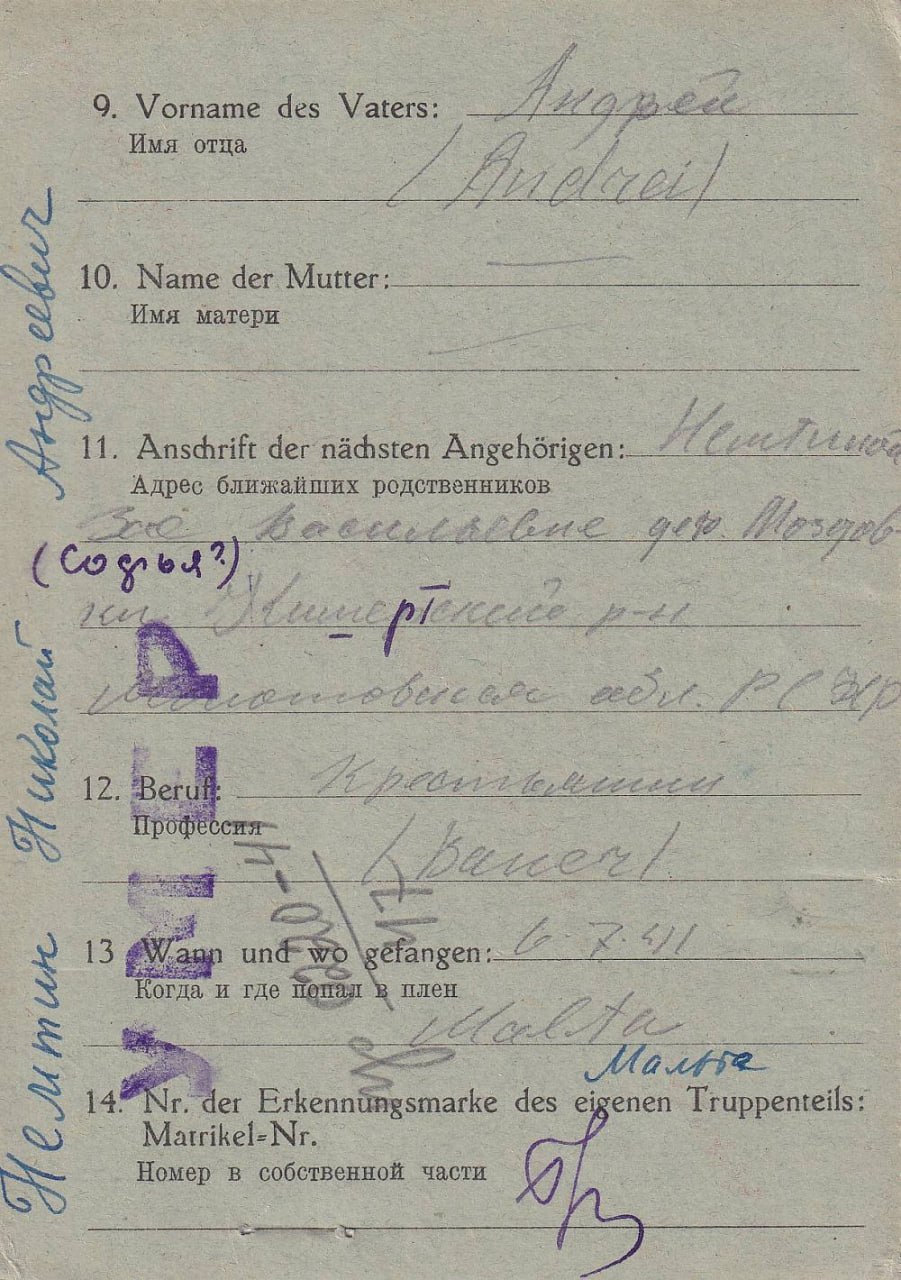 9. Vorname des Vaters: Андрей
Имя отца
(Andrei)
10. Name der Mutter:
Имя матери
11. Anschrift der nächsten Angehörigen: Немтинова
Адрес ближайших родственников
Зое Васильевне дер.
(Софья?)
р-н
обл.
12. Beruf: Крестьянин
Профессия
(Bauer)
13 Wann und wo gefangen: 6.7.41
Когда и где попал в плен
Malta
Мальта
14. Nr. der Erkennungsmarke des eigenen Truppenteils:
Matrikel=Nr.
Номер в собственной части
Немтин Николай Андреевич
УМЕР